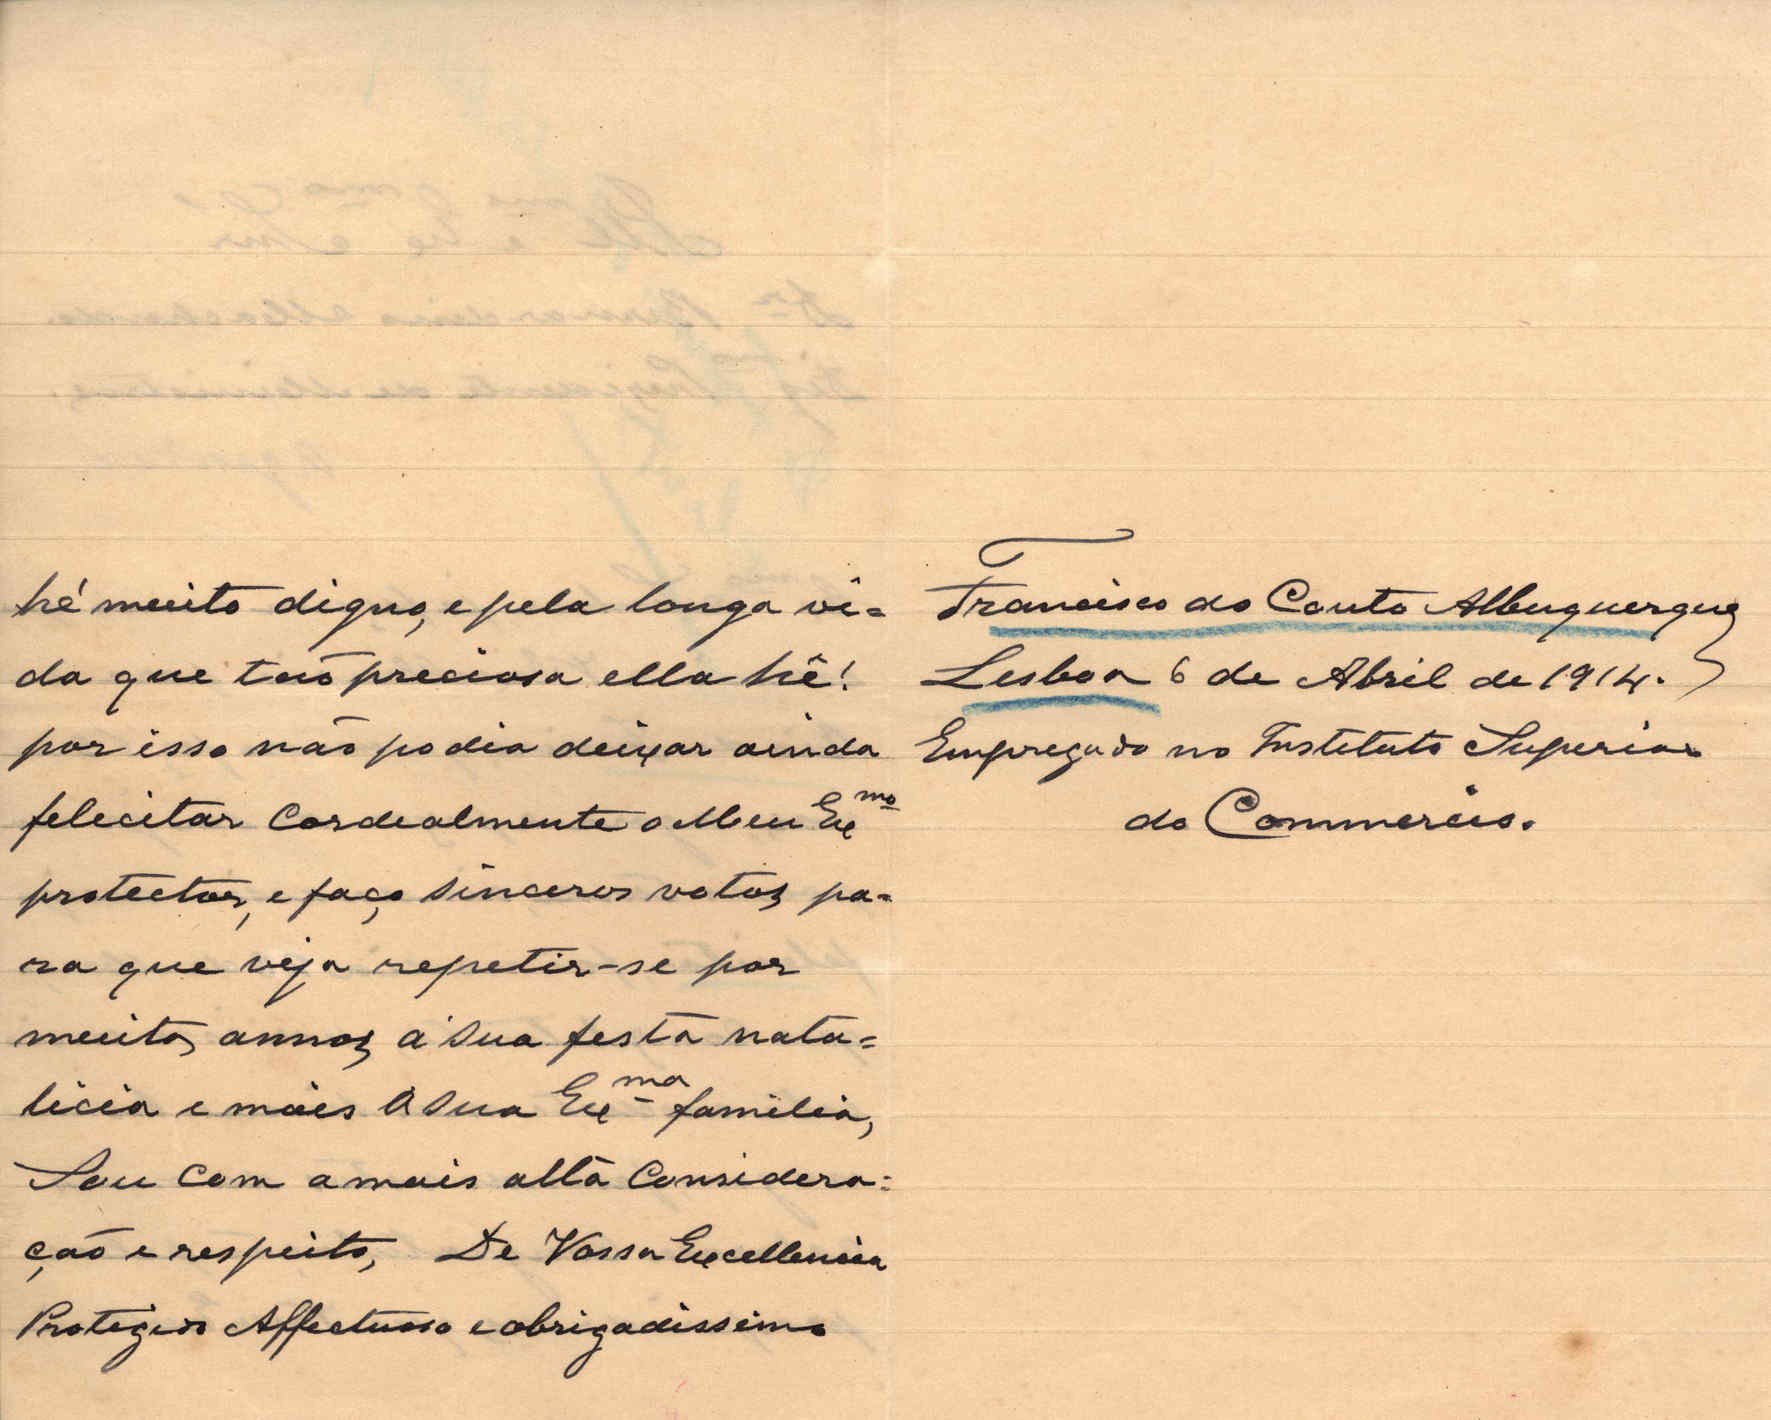 hé muito digno, e pela longa vi=
da que tão preciosa ella hê!
por isso não podia deixar ainda
felicitar Cordealmente o Meu Exmo
protector, e faço sinceros votos pa=
ra que veja repetir-se por
muitos annos á sua festa nata=
licia e mais á sua Exma familia,
Sou com a mais alta Considera=
ção e respeito, De Vossa Excellencia
Protegido Affectuoso e obrigadissimo
Francisco do Couto Albuquerque
Lisboa 6 de Abril de 1914.
Empregado no Instituto Superior
do Commercio.